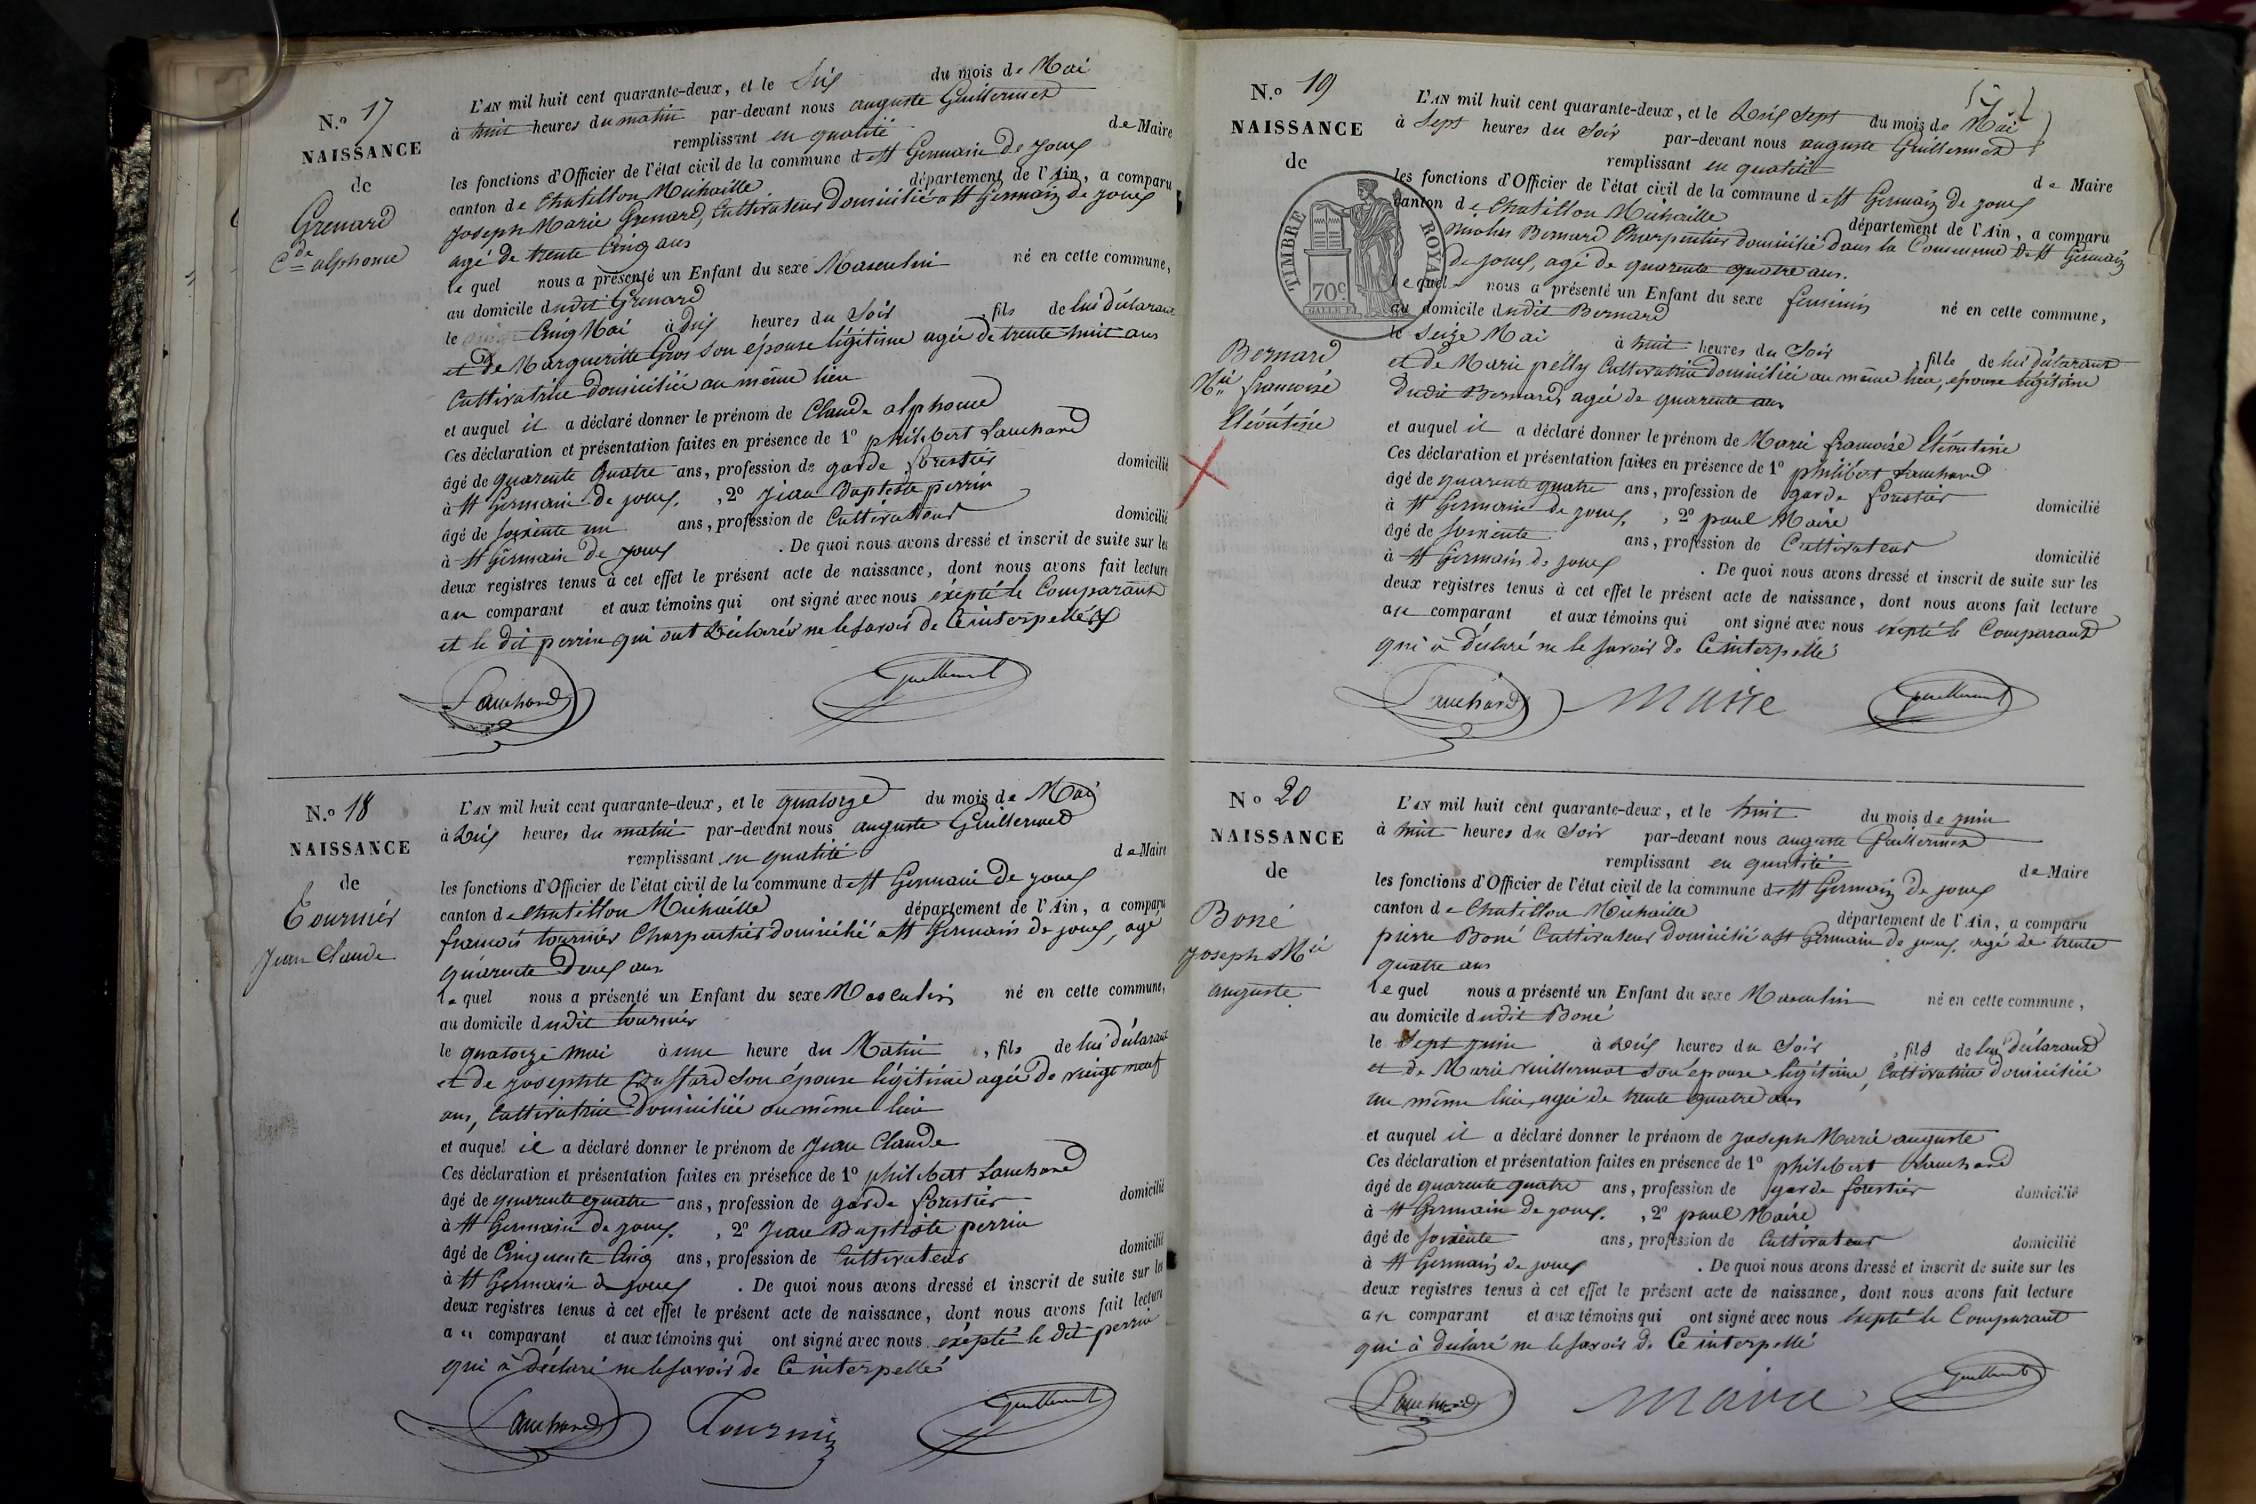 N.o 17
NAISSANCE
de
Grenard
Cde alphonse
L'AN mil huit cent quarante-deux, et le Six du mois de Mai
à huit heures du matin par-devant nous auguste Guillermet
remplissant en qualité de Maire
les fonctions d'Officier de l'état civil de la commune de St Germain de joux
canton de Chatillon Michaille département de l'Ain, a comparu
joseph Marie Grenard, Cultivateur domicilié a St Germain de joux
agé de trente Cinq ans
lequel nous a présenté un Enfant du sexe Masculin né en cette commune,
au domicile dudit Grenard
le Cinq Mai à Dix heures du Soir, fils de lui déclarant
et de Margueritte Gros son épouse légitime agée de trente huit ans
Cultivatrice domiciliée au même lieu
et auquel il a déclaré donner le prénom de Claude alphonse
Ces déclaration et présentation faites en présence de 1o philibert Lauchard
âgé de quarente quatre ans, profession de garde forestier domicilié
à St Germain de joux, 2o jean Baptiste perrin
âgé de soixente un ans, profession de Cultivateur domicilié
à St Germain de joux. De quoi nous avons dressé et inscrit de suite sur les
deux registres tenus à cet effet le présent acte de naissance, dont nous avons fait lecture
au comparant et aux témoins qui ont signé avec nous éxépté le Comparant
et le dit perrin qui ont Déclarés ne le savoir de Ce interpellés
Lauchard Guillermet
N.o 18
NAISSANCE
de
Tournier
Jean Claude
L'AN mil huit cent quarante-deux, et le quatorze du mois de Mai
à Dix heures du matin par-devant nous auguste Guillermet
remplissant en qualité de Maire
les fonctions d'Officier de l'état civil de la commune de St Germain de joux
canton de Chatillon Michaille département de l'Ain, a comparu
francois tournier Charpentier domicilié a St Germain de joux, agé
quarente Deux ans
lequel nous a présenté un Enfant du sexe Masculin né en cette commune,
au domicile dudit tournier
le quatorze mai à une heure du Matin, fils de lui déclarant
et de josephte Buffard son épouse légitime agée de vingt neuf
ans, Cultivatrice domiciliée au même lieu
et auquel il a déclaré donner le prénom de Jean Claude
Ces déclaration et présentation faites en présence de 1o philibert Lauchard
âgé de quarente quatre ans, profession de garde forestier domicilié
à St Germain de joux, 2o Jean Baptiste perrin
âgé de Cinquente Cinq ans, profession de Cultivateur domicilié
à St Germain de joux. De quoi nous avons dressé et inscrit de suite sur les
deux registres tenus à cet effet le présent acte de naissance, dont nous avons fait lecture
au comparant et aux témoins qui ont signé avec nous éxépté le dit perrin
qui à déclaré ne le savoir de Ce interpellé
Lauchard Tournier Guillermet
N.o 19
NAISSANCE
de
TIMBRE ROYAL
70c
Bernard
Mie francoise
Léontine
L'AN mil huit cent quarante-deux, et le Dix Sept du mois de Mai
à Sept heures du Soir par-devant nous auguste Guillermet
remplissant en qualité de Maire
les fonctions d'Officier de l'état civil de la commune de St Germain de joux
canton de Chatillon Michaille département de l'Ain, a comparu
nicolas Bernard Charpentier domicilié dans la Commune de St Germain
de joux, agé de quarente quatre ans.
lequel nous a présenté un Enfant du sexe feminin né en cette commune,
au domicile dudit Bernard
le seize Mai à huit heures du Soir, fille de lui déclarant
et de Marie pélly Cultivatrice domiciliée au même lieu, épouse légitime
dudit Bernard, agée de quarente ans
et auquel il a déclaré donner le prénom de Marie francoise Léontine
Ces déclaration et présentation faites en présence de 1o philibert Lauchard
âgé de quarente quatre ans, profession de garde forestier domicilié
à St Germain de joux, 2o paul Maire
âgé de soixente ans, profession de Cultivateur domicilié
à St Germain de joux. De quoi nous avons dressé et inscrit de suite sur les
deux registres tenus à cet effet le présent acte de naissance, dont nous avons fait lecture
au comparant et aux témoins qui ont signé avec nous éxépté le Comparant
qui à déclaré ne le savoir de Ce interpellé
Lauchard Maire Guillermet
No 20
NAISSANCE
de
Boné
joseph Mie
auguste
L'AN mil huit cent quarante-deux, et le huit du mois de juin
à huit heures du Soir par-devant nous auguste Guillermet
remplissant en qualité de Maire
les fonctions d'Officier de l'état civil de la commune de St Germain de joux
canton de Chatillon Michaille département de l'Ain, a comparu
pierre Boné Cultivateur domicilié a St Germain de joux, agé de trente
quatre ans
lequel nous a présenté un Enfant du sexe Masculin né en cette commune,
au domicile dudit Boné
le Sept juin à Dix heures du Soir, fils de lui déclarant
et de Marie vuillermot son épouse légitime, Cultivatrice domiciliée
au même lieu, agée de trente quatre ans
et auquel il a déclaré donner le prénom de joseph Marie auguste
Ces déclaration et présentation faites en présence de 1o philibert Lauchard
âgé de quarente quatre ans, profession de garde forestier domicilié
à St Germain de joux, 2o paul Maire
âgé de soixente ans, profession de Cultivateur domicilié
à St Germain de joux. De quoi nous avons dressé et inscrit de suite sur les
deux registres tenus à cet effet le présent acte de naissance, dont nous avons fait lecture
au comparant et aux témoins qui ont signé avec nous éxépté le Comparant
qui à déclaré ne le savoir de Ce interpellé
Lauchard Maire Guillermet